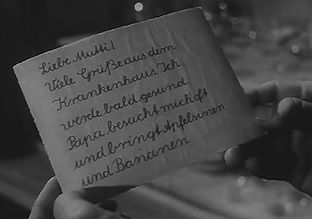 Liebe Mutti!
Viele Grüße aus dem
Krankenhaus Ich
werde bald gesund
Papa besucht mich oft
und bringt Apfelsinen
und Bananen